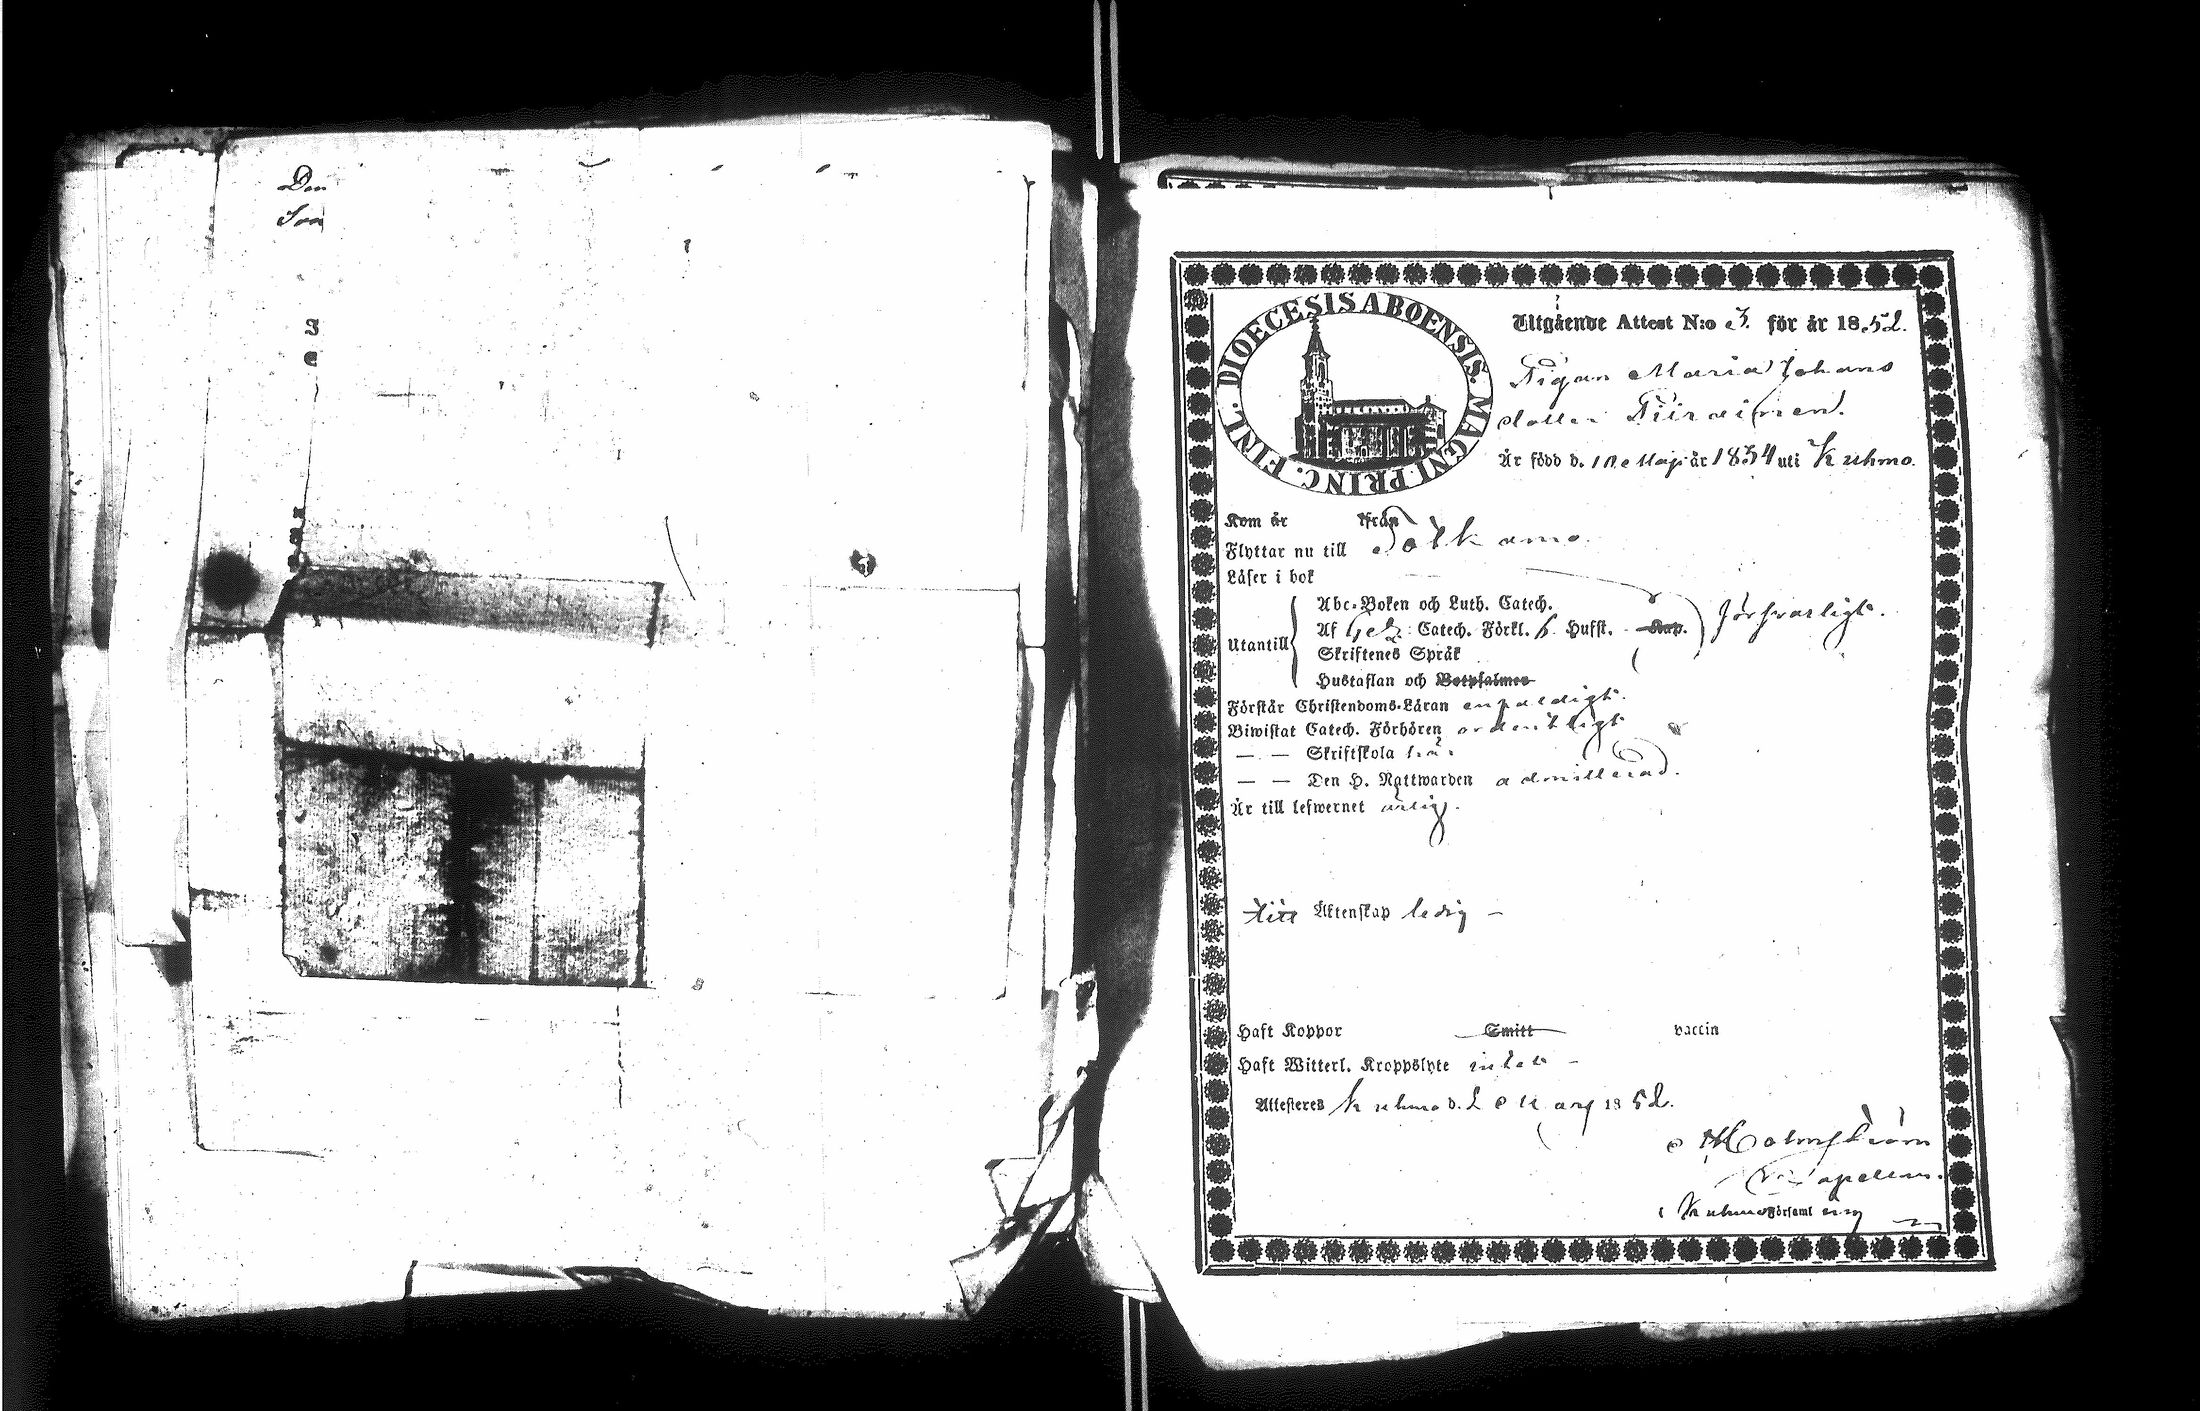 Den
Son
DIOECESIS ABOENSIS. MAGNI. PRINC. FINL.
Utgående Attest N:o 3. för år 1852.
Pigan Maria Johans
dotter Piirainen.
Är född d. 18 Maji år 1834 uti Kuhmo.
Kom år Ifrån
Flyttar nu till Sotkamo.
Läser i bok
Abc-Boken och Luth. Catech.
Utantill Af Gez: Catech. Förkl. 6 Hufst. Kap. försvarligt.
Skriftenes Språk
Hustaflan och Botpsalmer
Förstår Christendoms-Läran enfaldigt.
Biwistat Catech. Förhören ordentligt
— — Skriftskola här
— — Den H. Nattwarden admitterad.
Är till lefwernet ärlig.
Till Äktenskap ledig —
Haft Koppor Smitt vaccin
Haft Witterl. Kroppslyte intet —
Attesteres Kuhmo d. 2 Maij 1852.
Holmström
Capellan.
i Kuhmo Församling